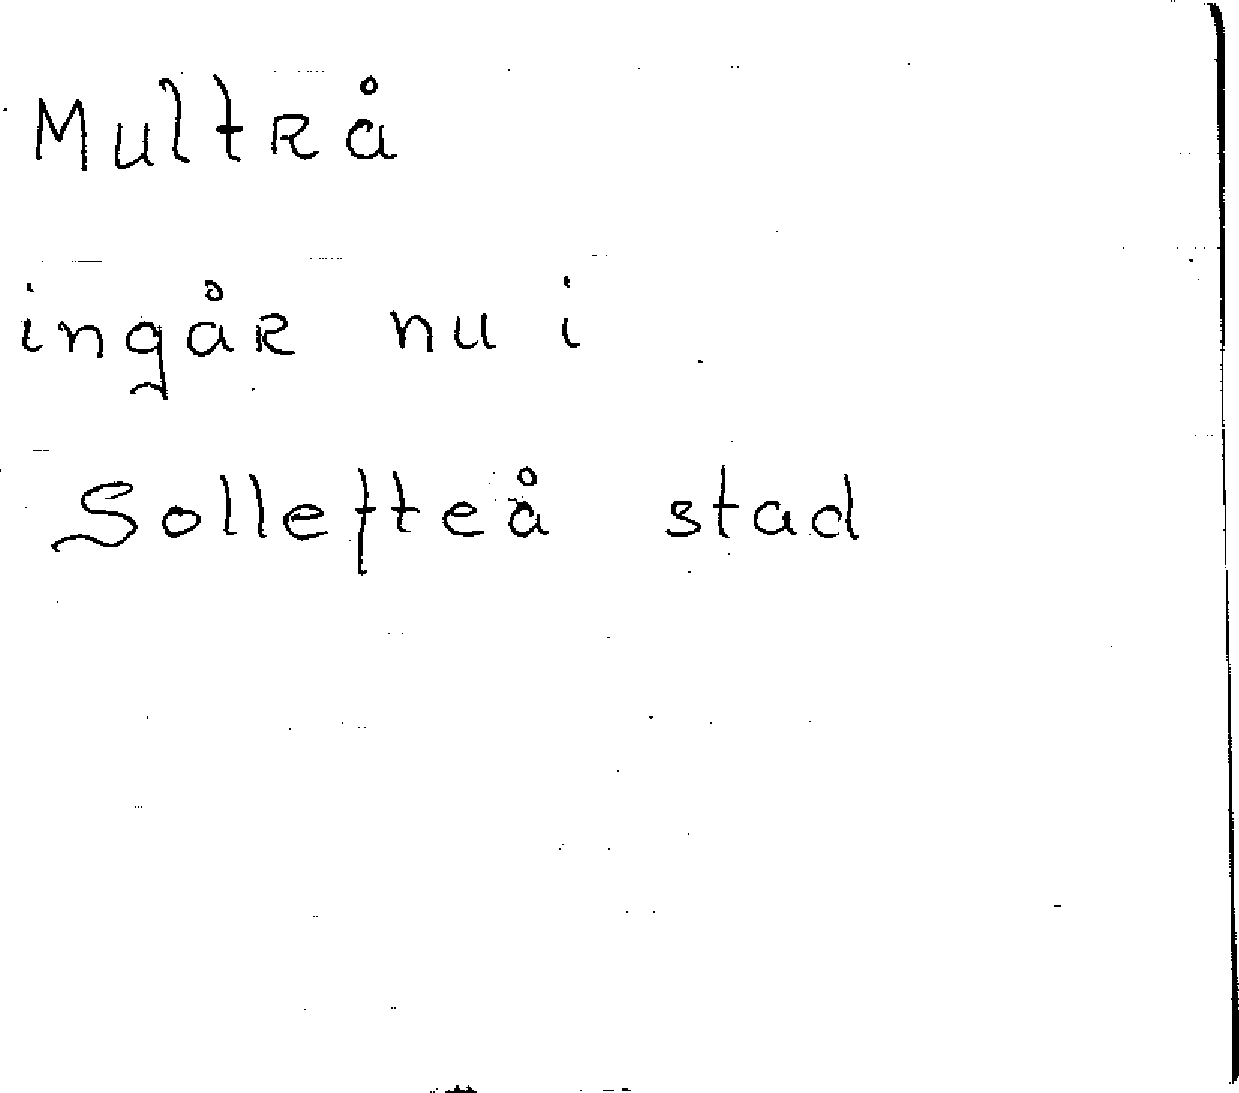 Multrå
ingår nu i
Sollefteå stad